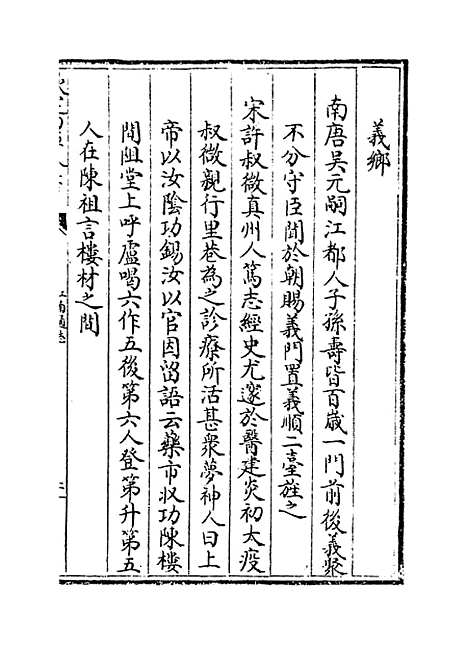 義鄉
南唐吳元嗣江都人子孫壽皆百歲一門前後義聚
不分守臣聞於朝賜義門置義順二臺旌之
宋許叔微真州人篤志經史尤邃於醫建炎初大疫
叔微親行里巷為之診療所活甚衆夢神人曰上
帝以汝陰功錫汝以官因留語云藥市收功陳樓
間阻堂上呼盧喝六作五後第六人登第升第五
人在陳祖言樓材之間
江南通志